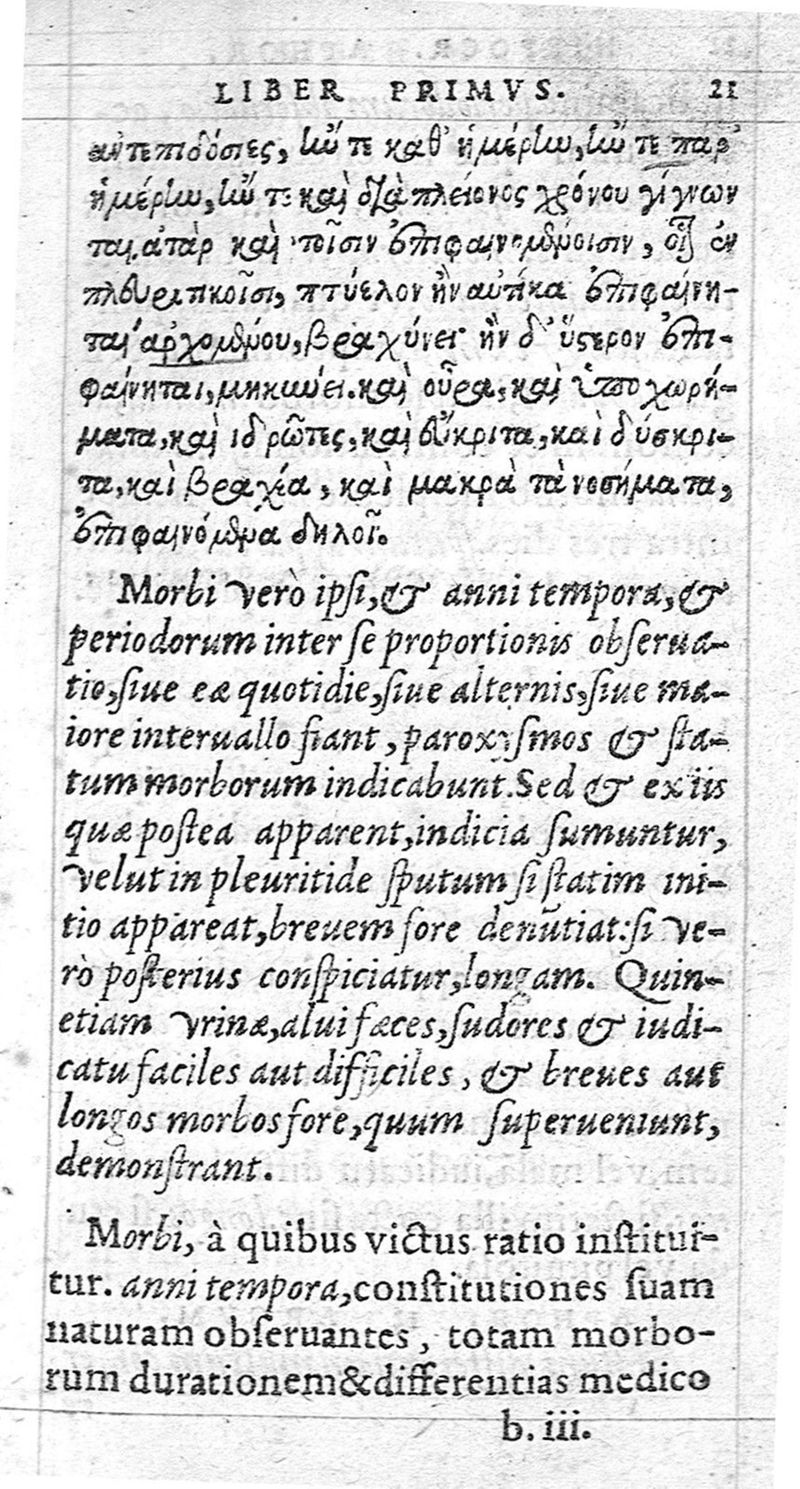 LIBER PRIMVS. 21
ἀνταποδόσιες, ἤν τε καθ᾽ ἡμέρην, ἤν τε παρ᾽
ἡμέρην, ἤν τε καὶ διὰ πλείονος χρόνου γίγνων
ται. ἀτὰρ καὶ τοῖσιν ἐπιφαινομένοισιν, οἷον ἐν
πλευριτικοῖσι, πτύελον ἢν αὐτίκα ἐπιφαίνη-
ται ἀρχομένου, βραχύνει· ἢν δ᾽ ὕστερον ἐπι-
φαίνηται, μηκύνει. καὶ οὖρα, καὶ ὑποχωρή-
ματα, καὶ ἱδρῶτες, καὶ εὔκριτα, καὶ δύσκρι-
τα, καὶ βραχέα, καὶ μακρὰ τὰ νοσήματα,
ἐπιφαινόμενα δηλοῖ.
Morbi verò ipsi, & anni tempora, &
periodorum inter se proportionis obserua-
tio, siue eæ quotidie, siue alternis, siue ma-
iore interuallo fiant, paroxysmos & sta-
tum morborum indicabunt. Sed & ex iis
quæ postea apparent, indicia sumuntur,
velut in pleuritide sputum si statim ini-
tio appareat, breuem fore denūtiat: si ve-
rò posterius conspiciatur, longam. Quin-
etiam vrinæ, alui fæces, sudores & iudi-
catu faciles aut difficiles, & breues aut
longos morbos fore, quum superueniunt,
demonstrant.
Morbi, à quibus victus ratio institui-
tur. anni tempora, constitutiones suam
naturam obseruantes, totam morbo-
rum durationem & differentias medico
b. iii.